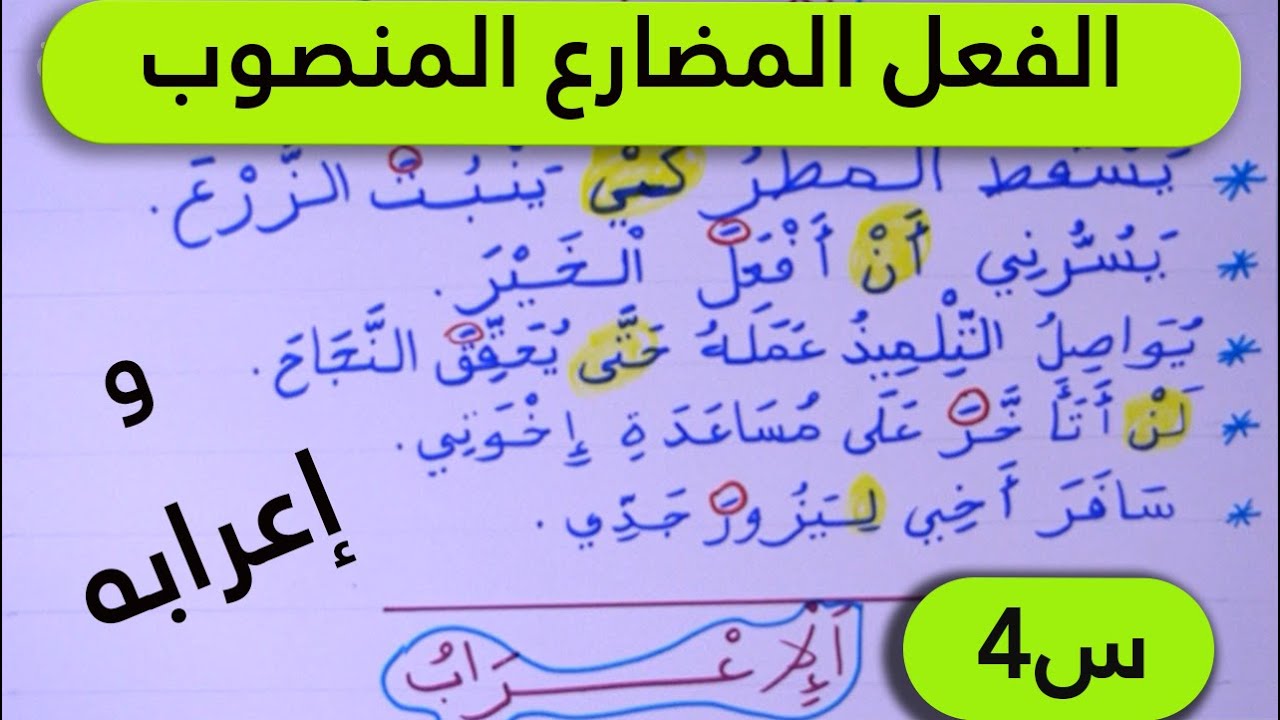 الفعل المضارع المنصوب
* يَسْقُطُ الـمطرُ كَـيْ يَنْبُتَ الـزَّرْعَ.
* يَسُرُّنِي أَنْ أَفْعَلَ الْخَيْرَ.
* يُوَاصِلُ التِّلْمِيذُ عَمَلَهُ حَتَّى يُحَقِّقَ النَّجَاحَ.
* لَنْ أَتَأَخَّرَ عَلَى مُسَاعَدَةِ إِخْوَتِي.
* سَافَرَ أَخِي لِيَزُورَ جَدِّي.
و
إعرابه
س4
اَلْإِعْرَابُ